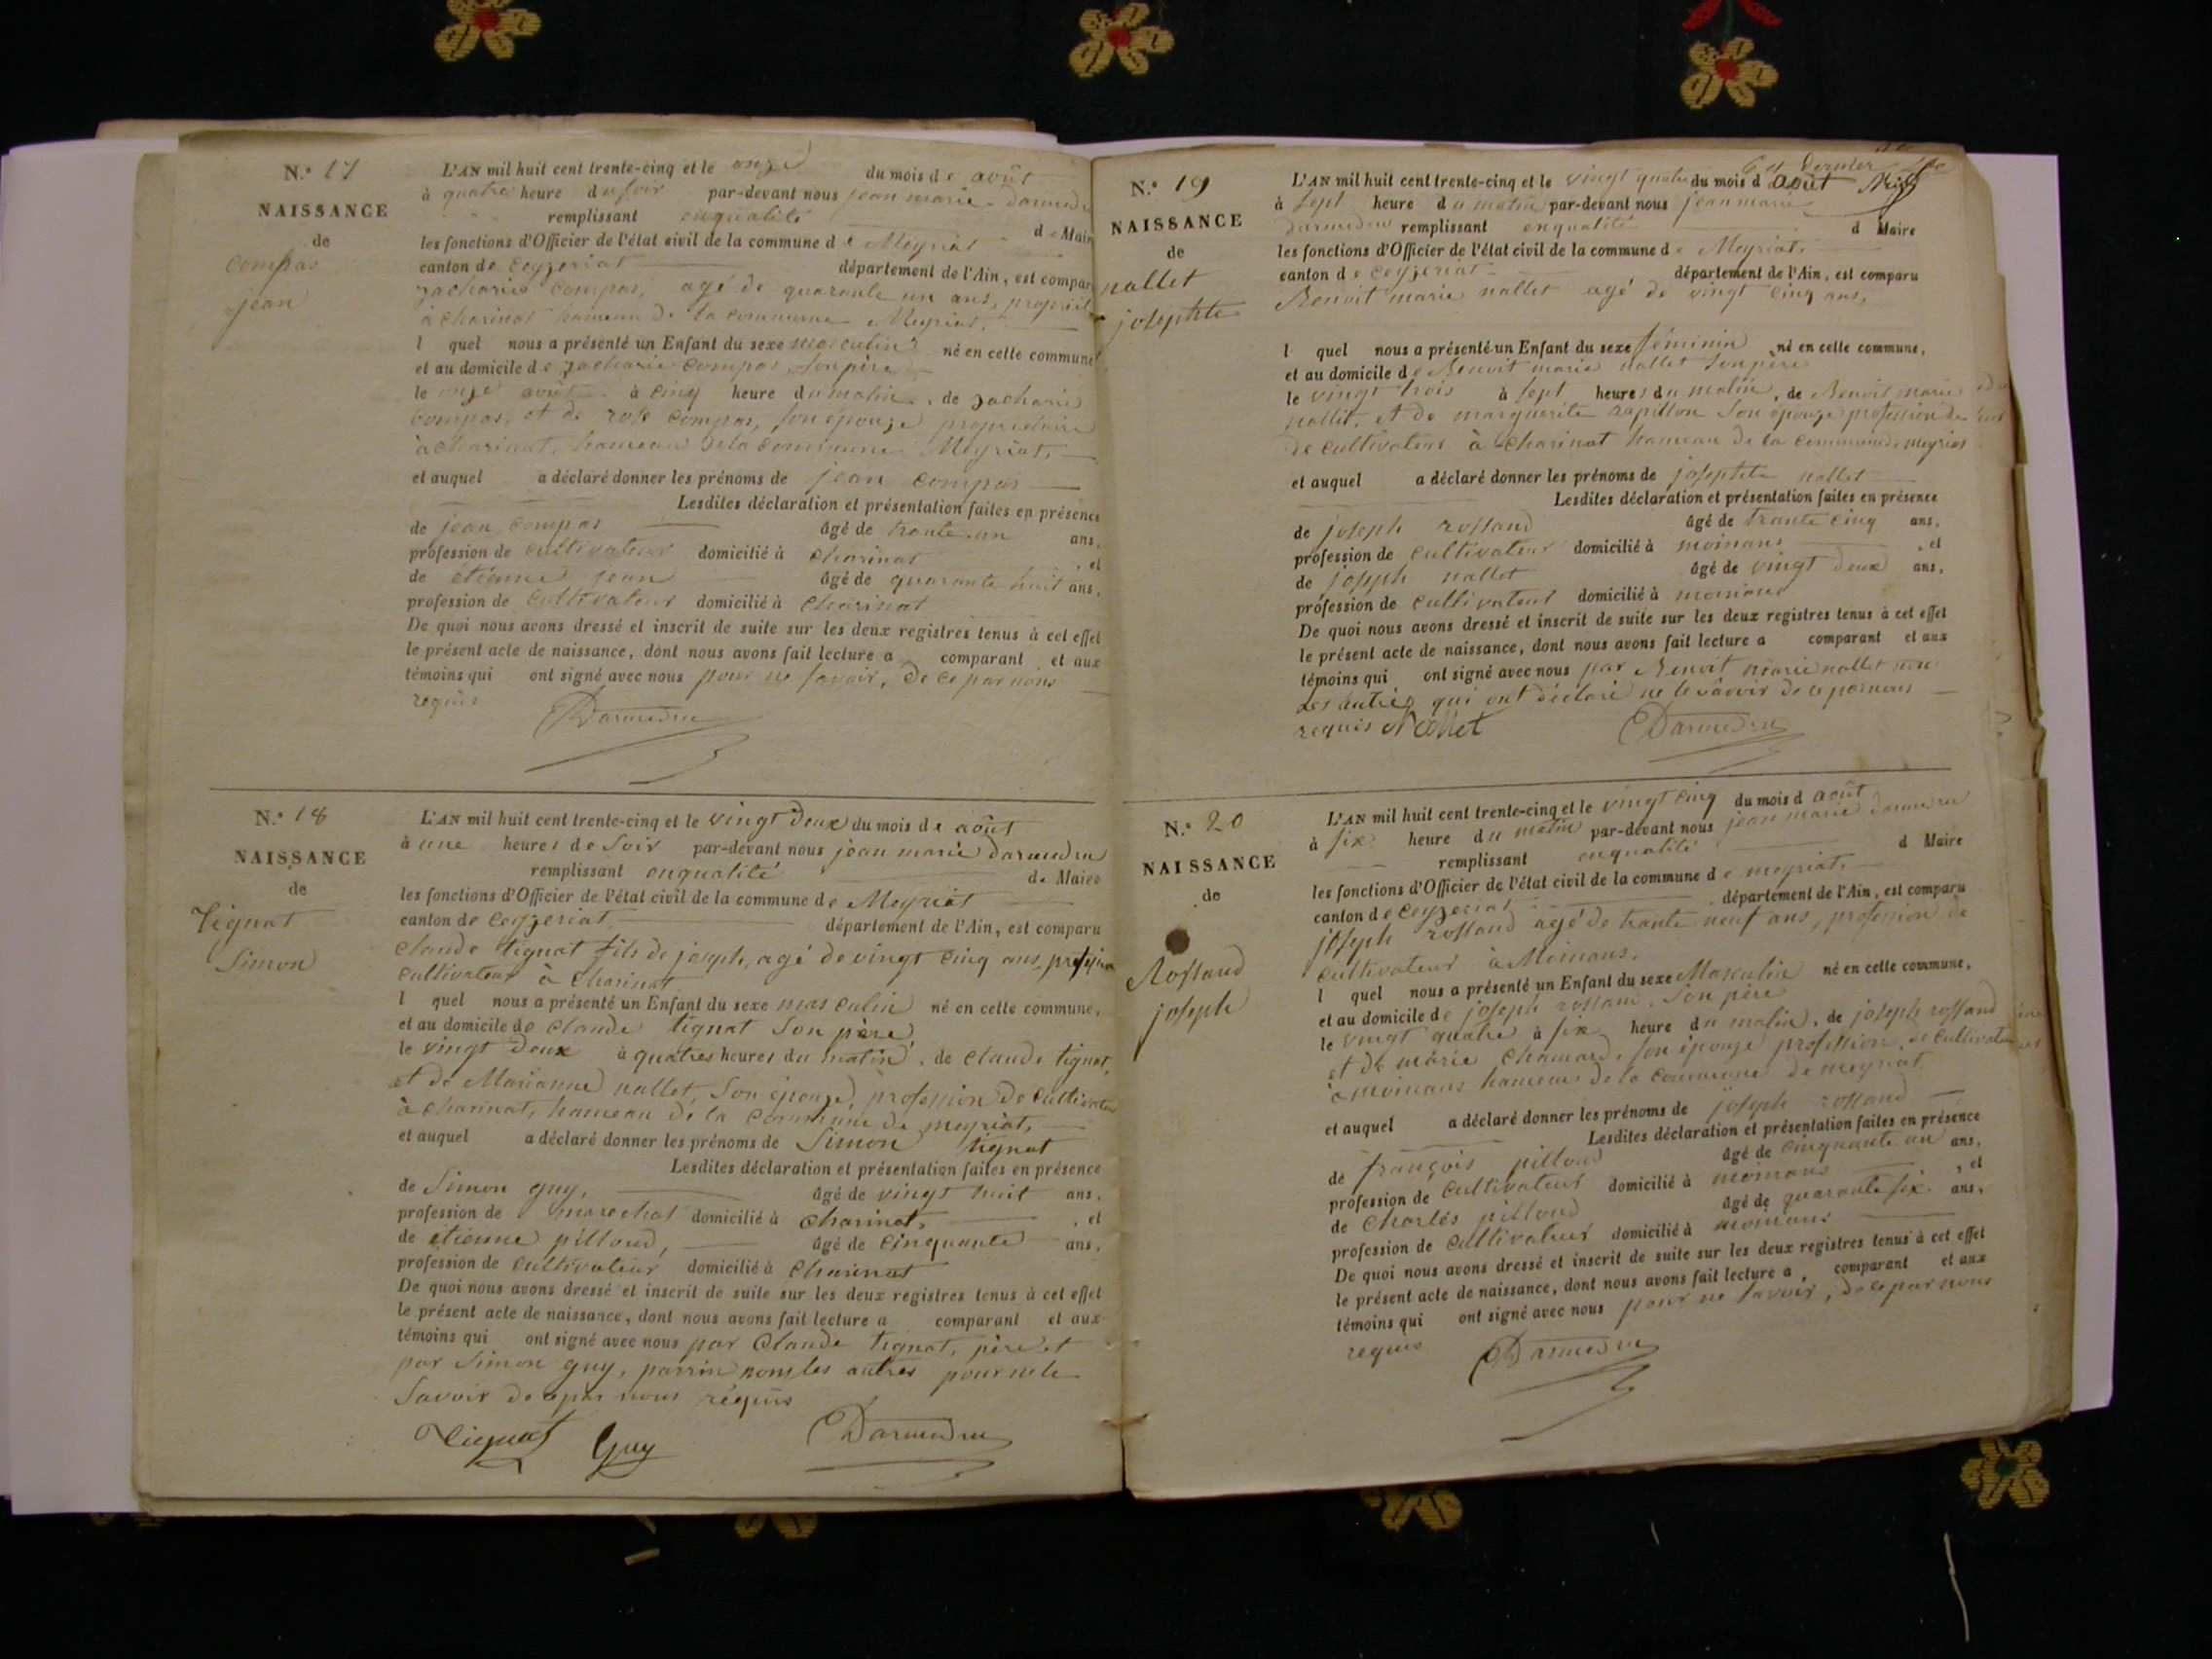 N.° 17
NAISSANCE
de
Compas
jean
L'AN mil huit cent trente-cinq et le onze du mois de août
à quatre heure du soir par-devant nous jean marie darmedru
remplissant enqualité de Maire
les fonctions d'Officier de l'état civil de la commune de Meyriat
canton de Ceyzeriat département de l'Ain, est comparu
zacharie compas, agé de quarante un ans, propriét
à charinat hameau de la commune Meyriat.
l quel nous a présenté un Enfant du sexe masculin né en cette commune
et au domicile de zacharie compas son père
le onze août à cinq heure du matin, de zacharie
compas, et de rose compas, son épouze propriétaire
à charinat, hameau de la commune Meyriat,
et auquel a déclaré donner les prénoms de jean compas
Lesdites déclaration et présentation faites en présence
de jean compas âgé de trante un ans,
profession de cultivateur domicilié à charinat, et
de étienne jean âgé de quarante huit ans,
profession de cultivateur domicilié à charinat
De quoi nous avons dressé et inscrit de suite sur les deux registres tenus à cet effet
le présent acte de naissance, dont nous avons fait lecture a comparant et aux
témoins qui ont signé avec nous pour ne savoir, de ce par nous
requis
Darmedru
N.° 18
NAISSANCE
de
Tignat
Simon
L'AN mil huit cent trente-cinq et le vingt deux du mois de août
à une heures de soir par-devant nous jean marie darmedru
remplissant enqualité de Maire
les fonctions d'Officier de l'état civil de la commune de Meyriat
canton de Ceyzeriat département de l'Ain, est comparu
claude tignat fils de joseph, agé de vingt cinq ans, profession
cultivateur à charinat
l quel nous a présenté un Enfant du sexe masculin né en cette commune,
et au domicile de claude tignat son père,
le vingt deux à quatres heures du matin, de claude tignat,
et de Marianne nallet, son épouze, profession de cultivateur
à charinat, hameau de la commune de meyriat,
et auquel a déclaré donner les prénoms de Simon tignat
Lesdites déclaration et présentation faites en présence
de Simon guy, âgé de vingt huit ans,
profession de marechal domicilié à charinat, et
de étienne pilloud, âgé de cinquante ans,
profession de cultivateur domicilié à charinat
De quoi nous avons dressé et inscrit de suite sur les deux registres tenus à cet effet
le présent acte de naissance, dont nous avons fait lecture a comparant et aux
témoins qui ont signé avec nous par claude tignat, père et
par Simon guy, parrin non les autres pour ne le
Savoir de ce par nous réquis
Tignat Guy Darmedru
N.° 19
NAISSANCE
de
nallet
josephte
dernier
L'AN mil huit cent trente-cinq et le vingt quatre du mois d août
à sept heure du matin par-devant nous jean marie
darmedru remplissant enqualité d Maire
les fonctions d'Officier de l'état civil de la commune de Meyriat.
canton de ceyzeriat département de l'Ain, est comparu
Benoit marie nallet agé de vingt cinq ans,
l quel nous a présenté un Enfant du sexe féminin né en cette commune,
et au domicile de Benoit marie nallet son père
le vingt trois à sept heures du matin, de Benoit marie
nallet, et de marguerite son épouze profession
de cultivateur à charinat hameau de la commune de meyriat
et auquel a déclaré donner les prénoms de josephte nallet
Lesdites déclaration et présentation faites en présence
de joseph rossand âgé de trante cinq ans,
profession de cultivateur domicilié à moinans, et
de joseph nallet âgé de vingt deux ans,
profession de cultivateur domicilié à moinans
De quoi nous avons dressé et inscrit de suite sur les deux registres tenus à cet effet
le présent acte de naissance, dont nous avons fait lecture a comparant et aux
témoins qui ont signé avec nous par Benoit marie nallet non
Les autres qui ont déclaré ne le savoir de ce par nous
requis Nallet Darmedru
N.° 20
NAISSANCE
de
Rossand
joseph
L'AN mil huit cent trente-cinq et le vingt cinq du mois d août
à six heure du matin par-devant nous jean marie darmedru
remplissant enqualité d Maire
les fonctions d'Officier de l'état civil de la commune de meyriat.
canton de Ceyzeriat département de l'Ain, est comparu
joseph rossand agé de trante neuf ans, profession de
cultivateur à Moinans.
l quel nous a présenté un Enfant du sexe Masculin né en cette commune,
et au domicile de joseph rossand, son père
le vingt quatre à six heure du matin, de joseph rossand
et de marie chanard, son épouze profession de cultivateur
à moinans hameau de la commune de meyriat
et auquel a déclaré donner les prénoms de joseph rossand
Lesdites déclaration et présentation faites en présence
de françois pilloud âgé de cinquante un ans,
profession de cultivateur domicilié à moinans, et
de charles pilloud âgé de quarante six ans,
profession de cultivateur domicilié à moinans
De quoi nous avons dressé et inscrit de suite sur les deux registres tenus à cet effet
le présent acte de naissance, dont nous avons fait lecture a comparant et aux
témoins qui ont signé avec nous pour ne savoir, de ce par nous
requis
Darmedru